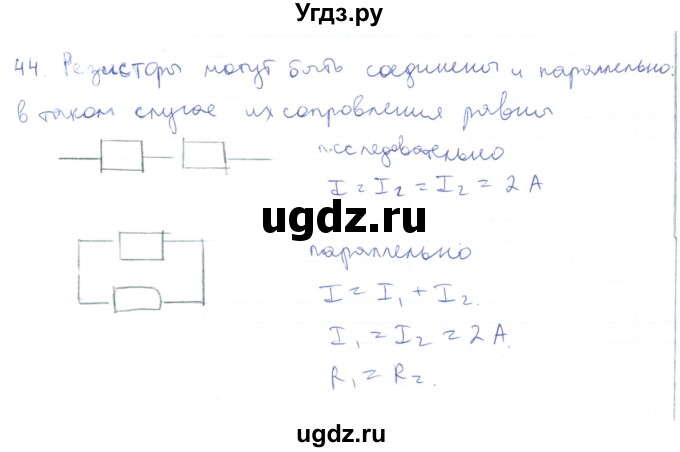 Угдз.ру
44. Резисторы могут быть соединены и параллельно:
в таком случае их сопровления равны
последовательно
I = I2 = I2 = 2 A
ugdz.ru
параллельно
I = I1 + I2.
I1 = I2 = 2 A.
R1 = R2.
ugdz.ru